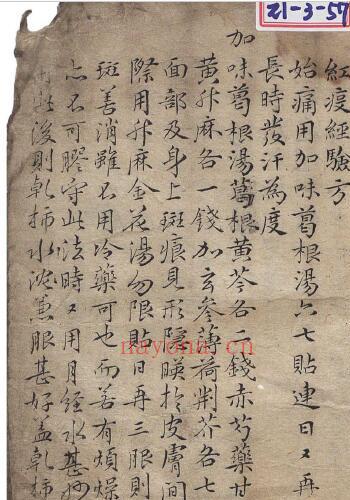 21-3-57
紅疫經驗方
始痛用加味葛根湯六七貼連日又再
長時發汗為度
加味葛根湯葛根黃芩各二錢赤芍藥甘
黃升麻各一錢加玄參薄荷荊芥各七
面部及身上斑痕見形隱映於皮膚間
際用升麻金花湯勿限貼日再三服則
斑善消雖不用冷藥可也而善有煩燥
亦不可膠守此法時又用月經水甚妙
此後則乾柿水沈蔥服甚好盖乾柿
nayona.cn